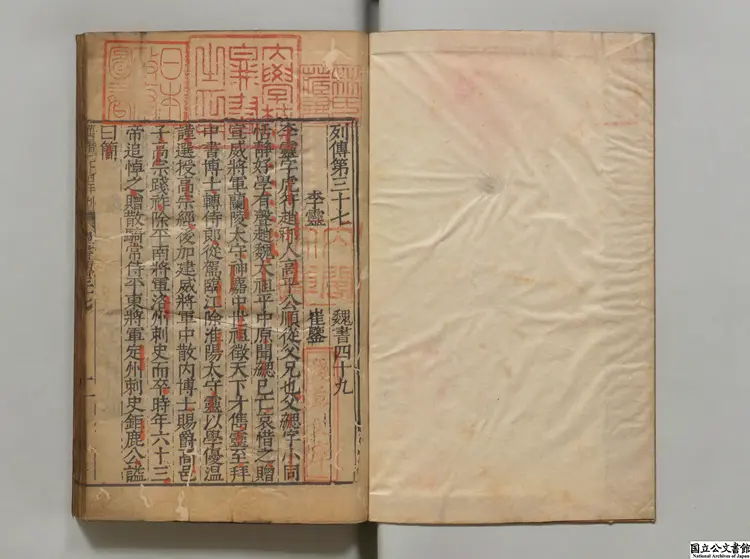 列傳第三十七　魏書四十九
李靈　崔鑒
李靈字虎符趙郡人高平公順從父兄也父勰字小同
恬靜好學有聲趙魏太祖平中原聞勰已亡哀惜之贈
宣威將軍蘭陵太守神䴥中世祖徵天下才儁靈至拜
中書博士轉侍郎從駕臨江除淮陽太守靈以學優溫
謹選授高宗經後加建威將軍中散內博士賜爵高邑
子高宗踐祚除平南將軍洛州刺史而卒時年六十三
帝追悼之贈散騎常侍平東將軍定州刺史鉅鹿公謚
曰簡
国立公文書館
National Archives of Japan